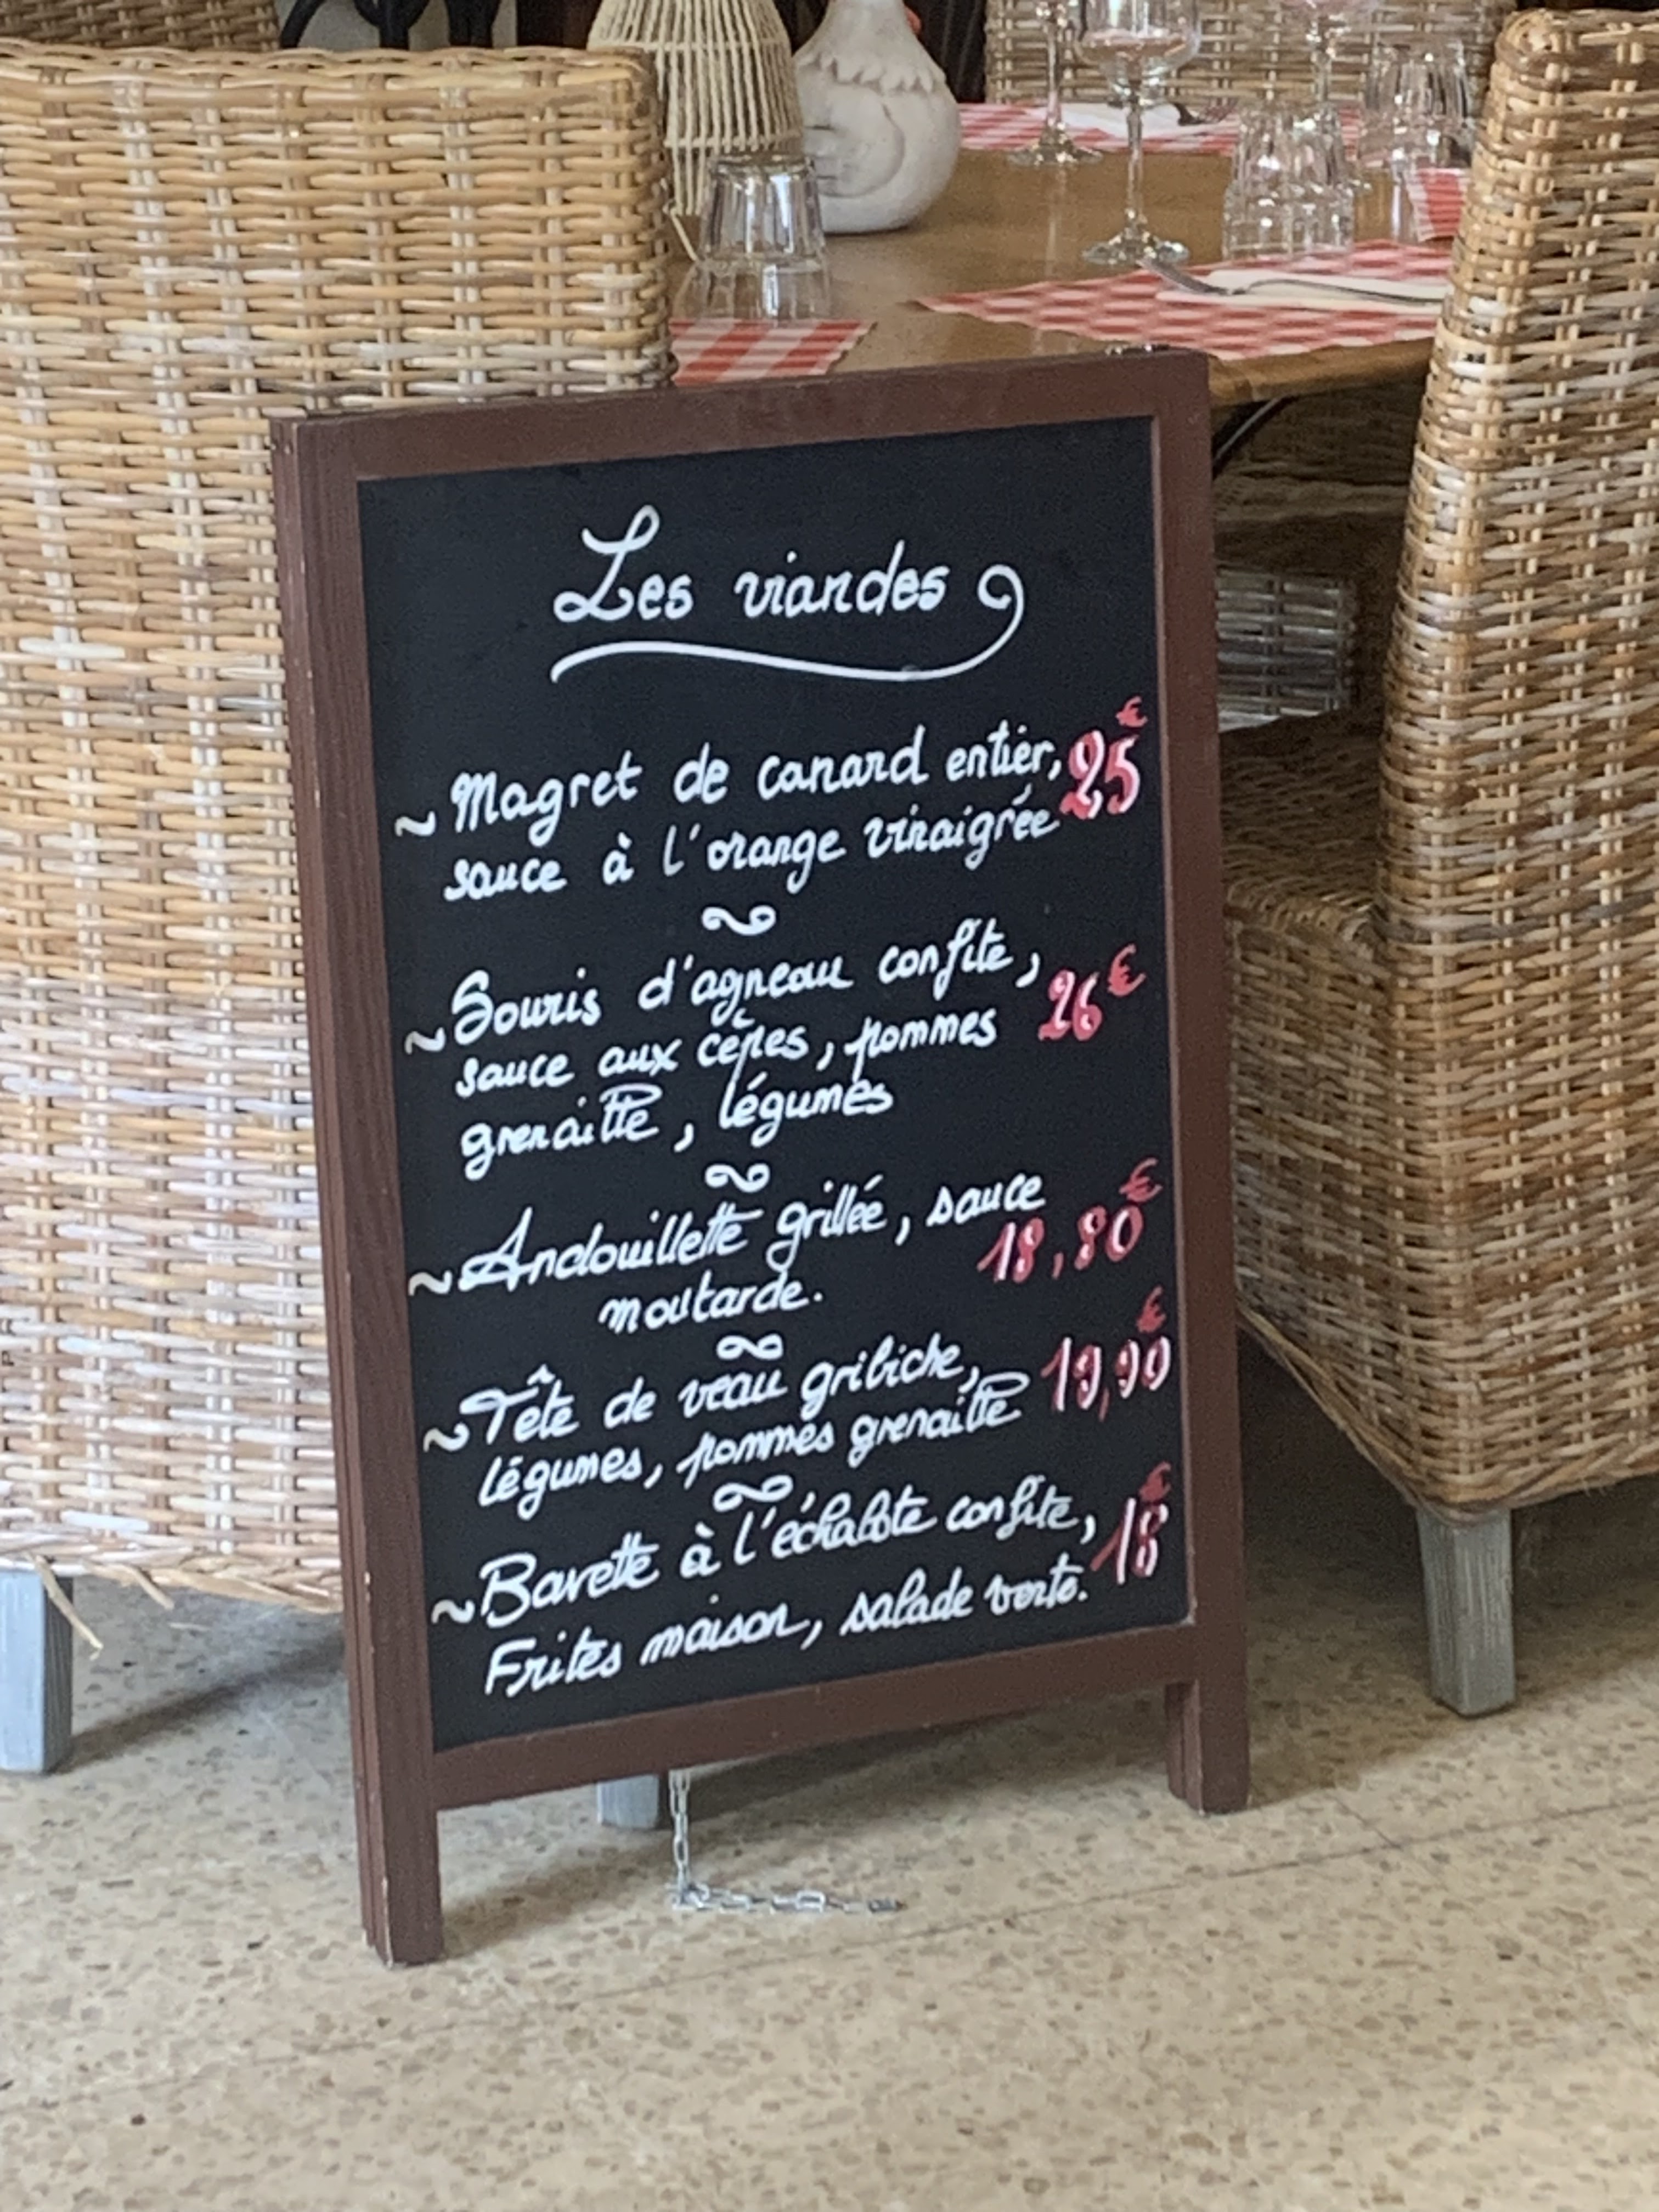 Les viandes
~ Magret de canard entier, 25€
sauce à l'orange vinaigrée
~ Souris d'agneau confite,
sauce aux cèpes, pommes 26€
grenaille, légumes
~ Andouillette grillée, sauce
moutarde. 18,80€
~ Tête de veau gribiche, 19,90€
légumes, pommes grenaille
~ Bavette à l'échalote confite, 18€
Frites maison, salade verte.